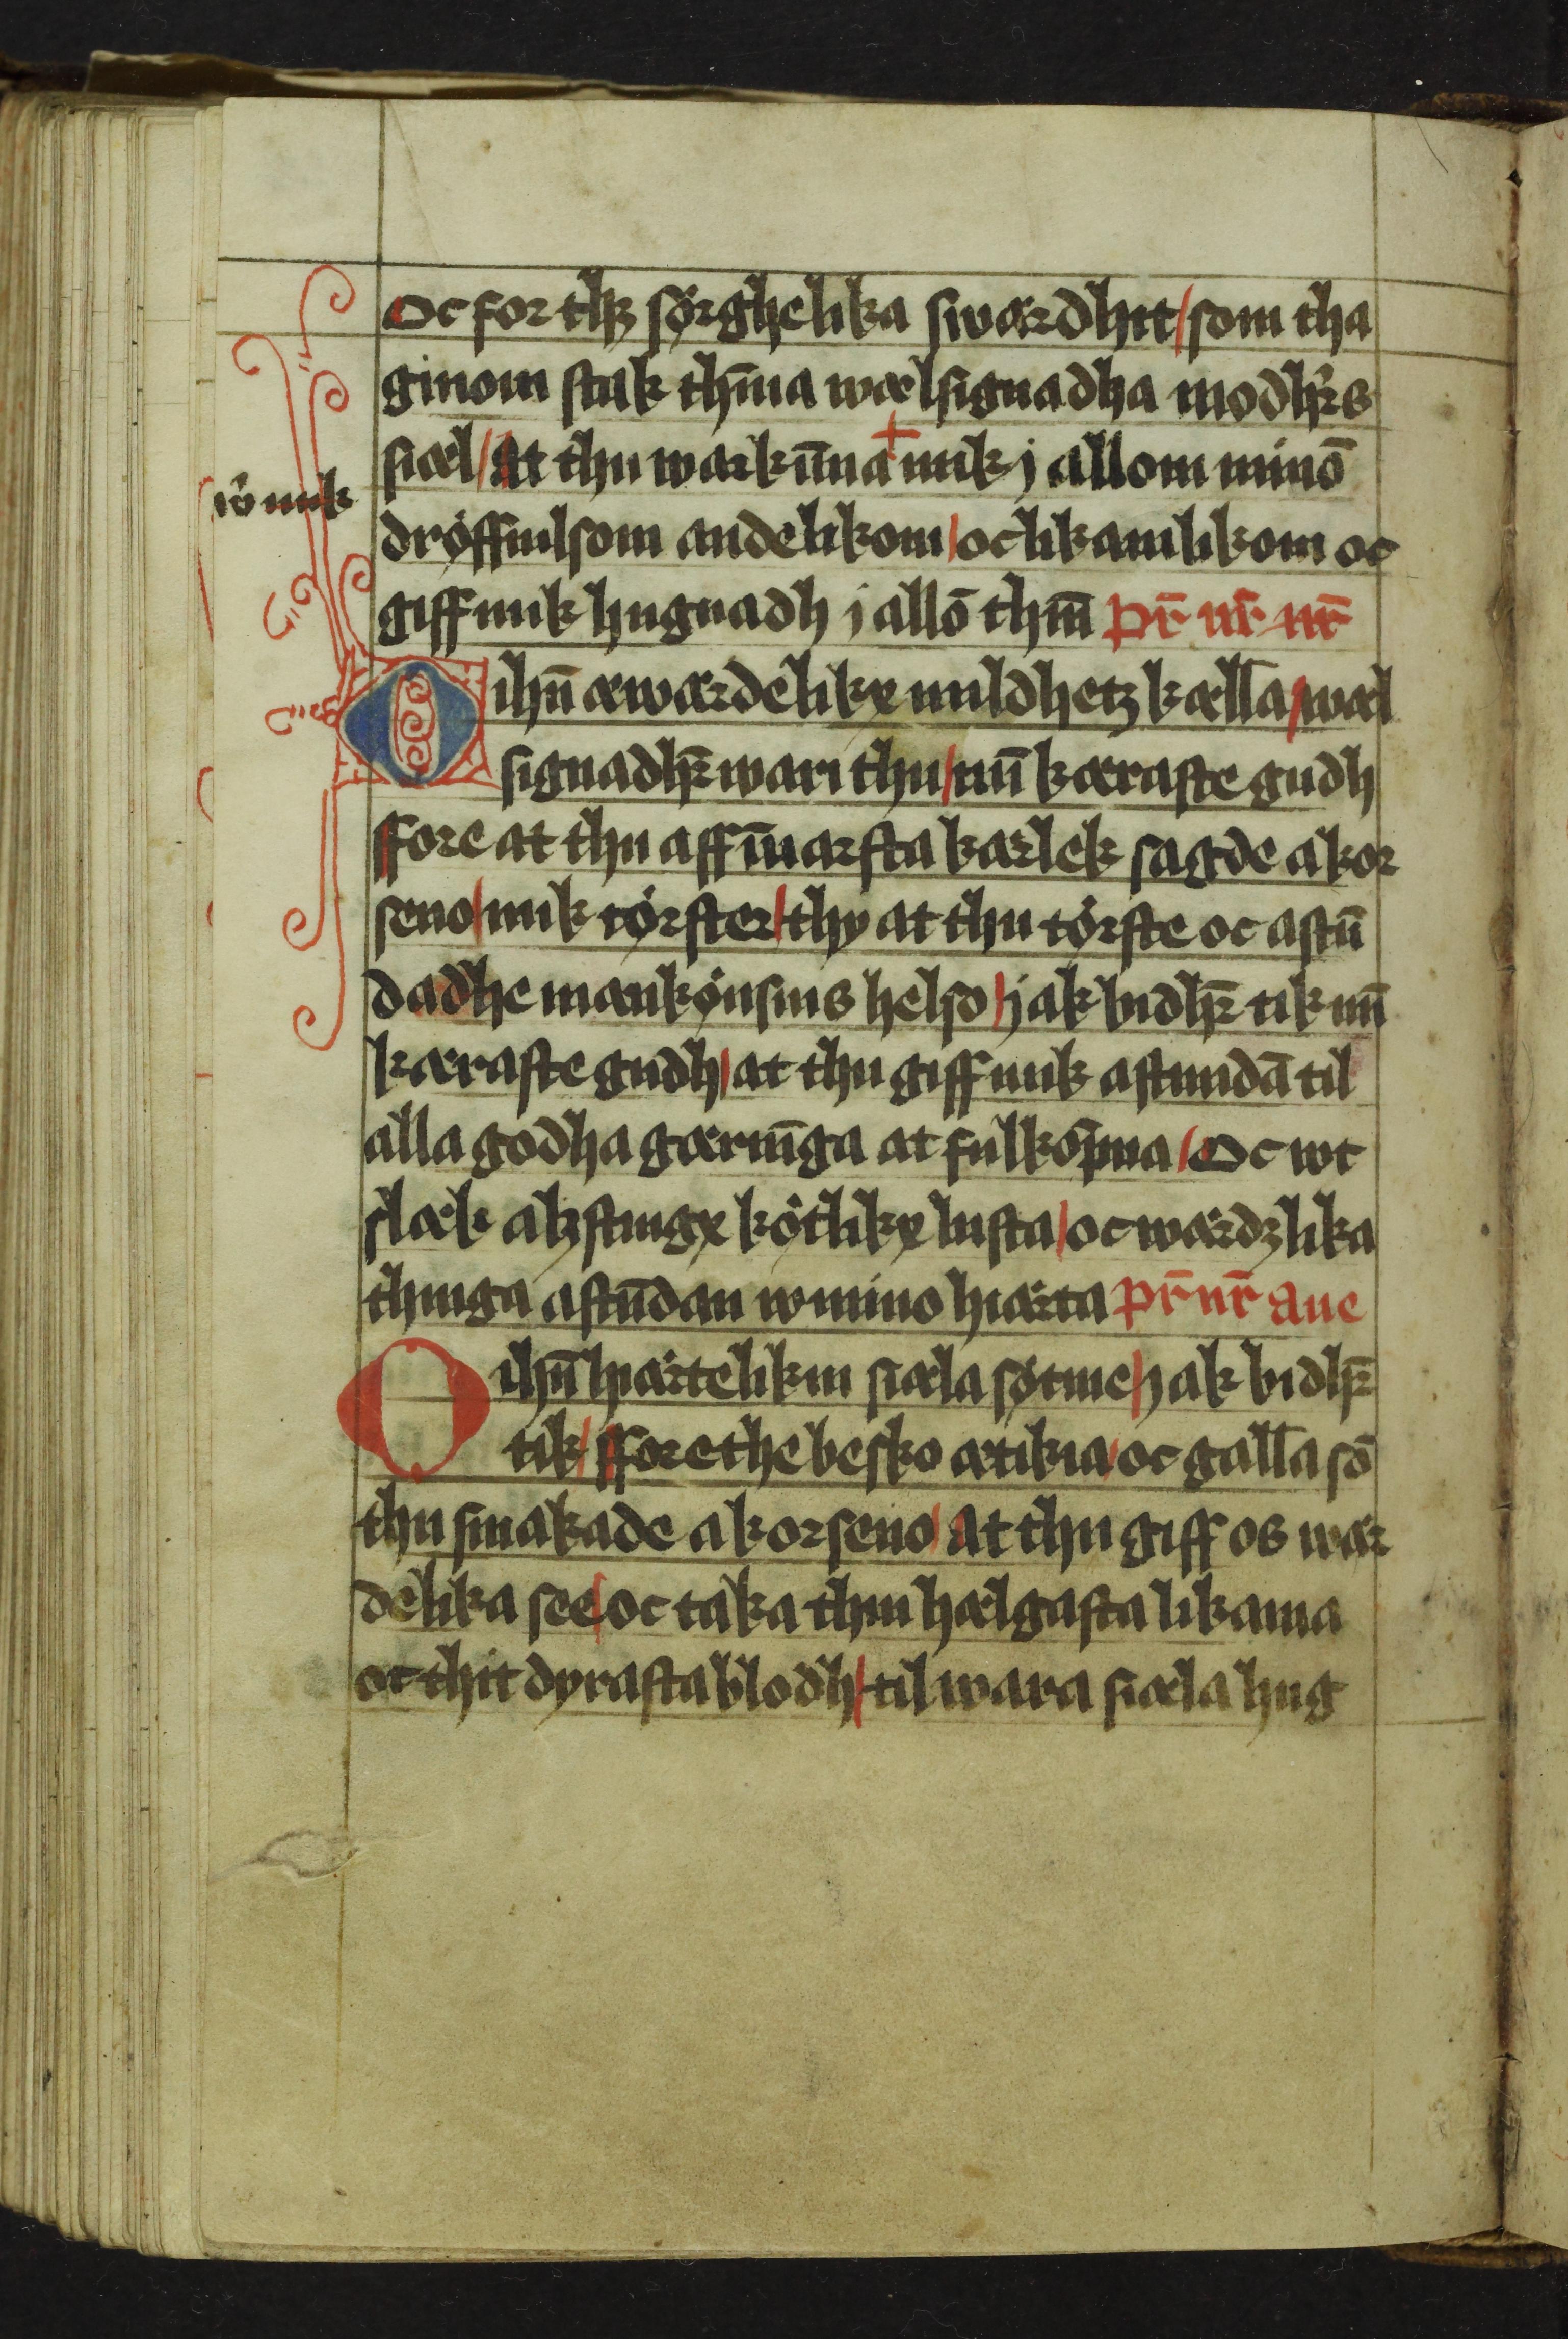 Oc for thꝫ sörghelika swärdhit / som tha
ginom stak thīna wælsignadha modhr̄s
siæl / At thu warkūna + mik j allom minō
ow̄ mik
dröffuilsom andelikom / oc likamlikom oc
giff mik hugnadh j allō thīm pr̄ nr̄ nr̄
O ihū æwærdelikx mildhetz kælla / wæl
signadhr̄ wari thu / mī kæraste gudh
ffore at thu aff īnarsta kärlek sagde a kor
seno / mik törster / thy at thu törste oc astū
dadhe mankönsins helso / jak bidhr̄ tik mī
kæraste gudh / at thu giff mik astundā til
alla godha gærnīga at fulkōpna / Oc wt
släk alzstingx kötlikx lusta / oc wärdzlika
thinga astūdan w mino hiärta pr̄ nr̄ aue
O ihū hiärtelikin siæla sötme / jak bidhr̄
tik / ffore the besko ætikia / oc galla sō
thu smakade a korseno / At thu giff os wær
delika see / oc taka thin hælgasta likama
oc thit dyrasta blodh / til wara siæla hug